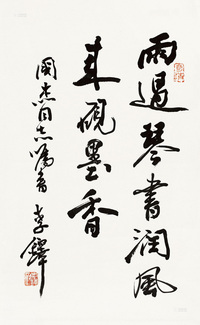 雨過琴書潤風
來硯墨香
国杰同志嘱書 李鐸